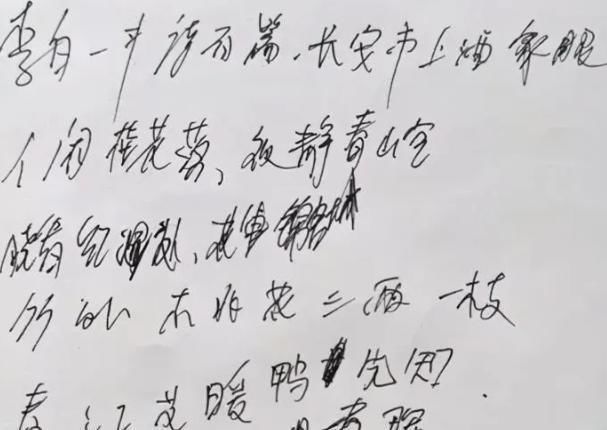 李白一斗诗百篇.长安市上酒家眠
人闲桂花落、夜静春山空
晓看红湿处、花重锦官
竹外 花三两一枝
春江 暖鸭先知